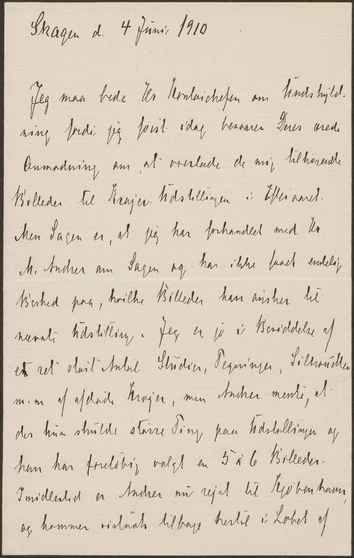 Skagen d. 4 Juni 1910
Jeg maa bede Hr Kontorchefen om Undskyld-
ning fordi jeg først idag besvarer Deres ærede
Anmodning om at overlade de mig tilhørende
Billeder til Krøjer Udstillingen i Efteraaret.
Men Sagen er, at jeg har forhandlet med Hr
M. Ancher om Sagen og har ikke faaet endelig
Besked paa, hvilke Billeder han ønsker til
nævnte Udstilling. Jeg er jo i Besiddelse af
et ret stort Antal Studier, Tegninger, Silhouetter
m.m. af afdøde Krøjer, men Ancher mente, at
der kun skulde større Ting paa Udstillingen og
han har foreløbig valgt en 5 à 6 Billeder.
Imidlertid er Ancher nu rejst til Kjøbenhavn,
og kommer tilbage hertil i Løbet af